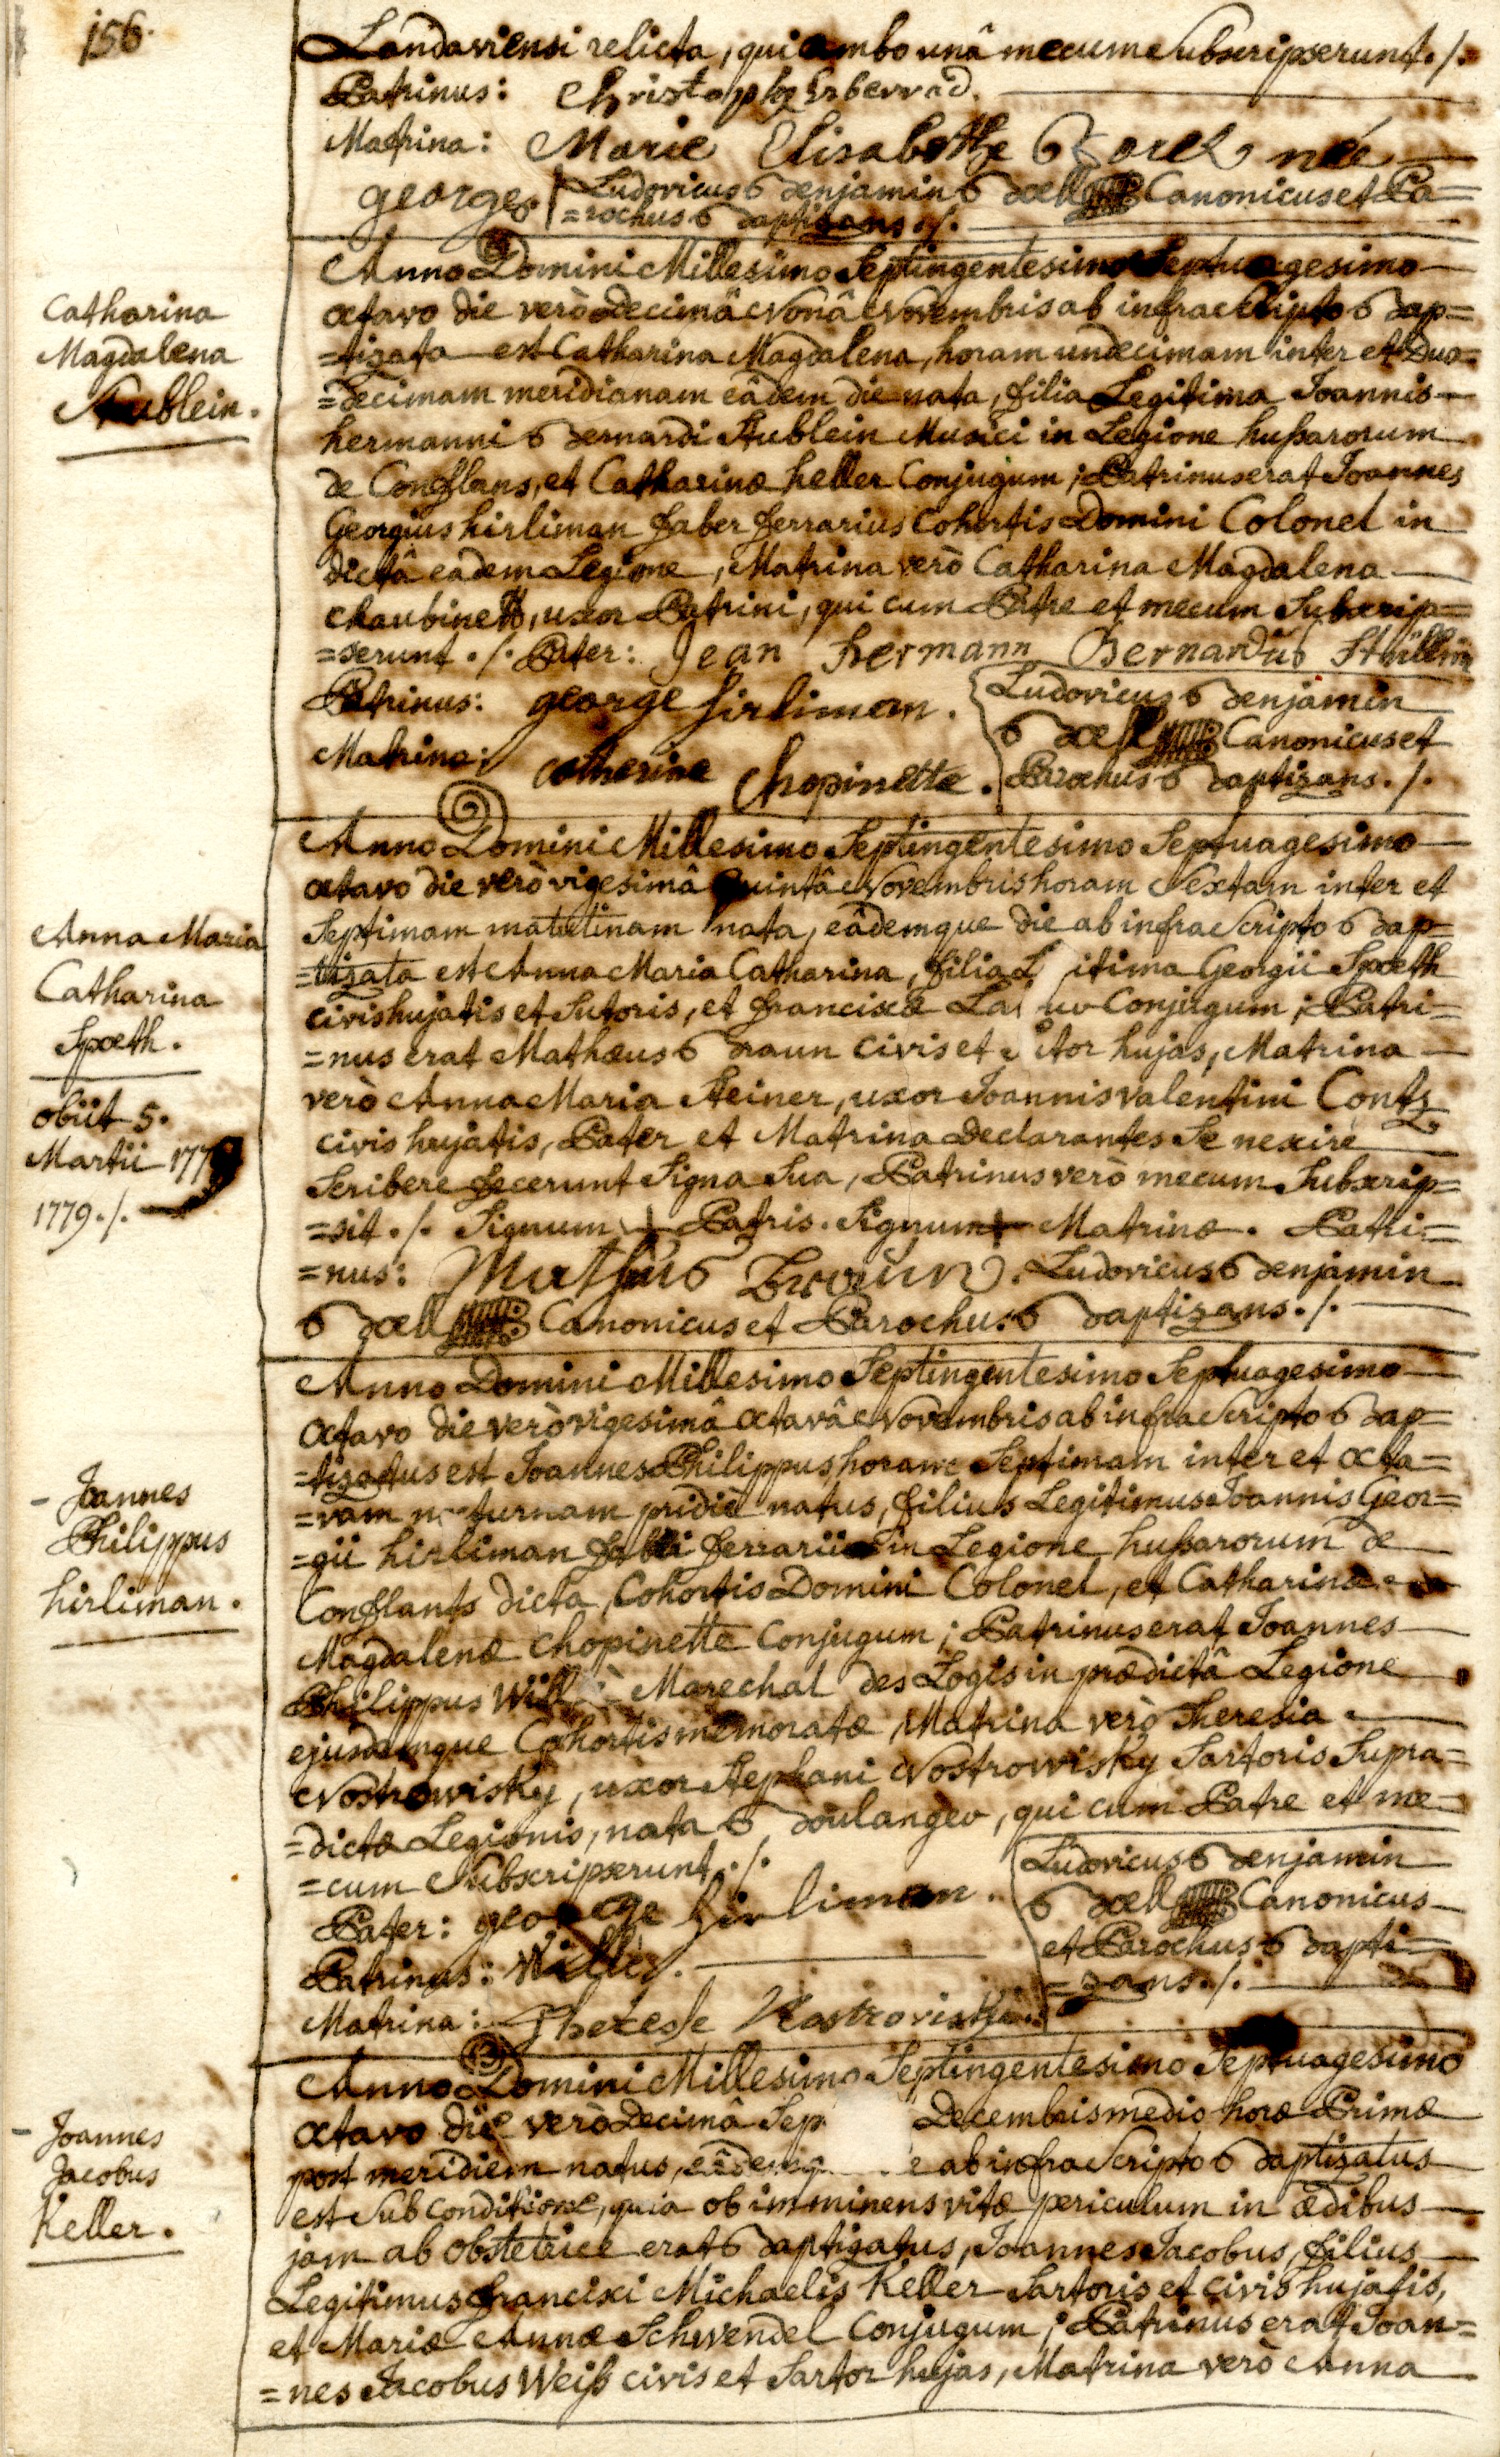 156.
Landaviensi relicta, qui ambo unâ mecum Subscripserunt ./.
Patrinus: Christoph
Matrina: Marie Elisabethe née
george. Ludovicus Benjamin Bœll Canonicus et Pa=
=rochus Baptizans ./.
Catharina
Magdalena
Stublein.
Anno Domini Millesimo Septingentesimo Septuagesimo
octavo die verò Decimâ Nonâ Novembris ab infra Scripto Bap=
=tizata est Catharina Magdalena, horam undecimam inter et Duo=
=decimam meridianam eâdem die nata, filia Legitima Joannis
hermanni Bernardi Stublein Musici in Legione hußarorum
de Conflans, et Catharinæ heller Conjugum; Patrinus erat Joannes
Georgius hirliman faber ferrarius Cohortis Domini Colonel in
dictâ eâdem Legione, Matrina verò Catharina Magdalena
chaubinett, uxor Patrini, qui cum Patre et mecum Subscrip=
=serunt ./. Pater: Jean hermann Bernardus
Patrinus: george hirlimann.
Matrina: catherine Chopinette.
Ludovicus Benjamin
Bœll Canonicus et
Parochus Baptizans ./.
Anna Maria
Catharina
Spœth.
obiit 5.
Martii 177
1779 ./.
Anno Domini Millesimo Septingentesimo Septuagesimo
octavo die verò vigesimâ quintâ Novembris horam Sextam inter et
Septimam matutinam nata, eâdemque die ab infra Scripto Bap=
=tizata est Anna Maria Catharina, filia L itima Georgii Spœth
civis hujatis et Sutoris, et franciscæ Conjugum; Patri=
=nus erat Mathæus Braun civis et itor hujas, Matrina
verò Anna Maria Steiner, uxor Joannis Valentini Contz
civis hujatis, Pater et Matrina Declarantes Se nescire
Scribere fecerunt Signa Sua, Patrinus verò mecum Subscrip=
=sit ./. Signum + Patris. Signum + Matrinæ. Patri=
=nus: Mathäus Braun. Ludovicus Benjamin
Bœll Canonicus et Parochus Baptizans ./.
- Joannes
Philippus
hirliman.
Anno Domini Millesimo Septingentesimo Septuagesimo
Octavo die verò vigesimâ octavâ Novembris ab infra Scripto Bap=
=tizatus est Joannes Philippus horam Septimam inter et octa=
=vam nocturnam pridie natus, filius Legitimus Joannis Geor=
=gii hirliman fabri ferrarii in Legione hußarorum de
Conflants dicta, Cohortis Domini Colonel, et Catharinæ
Magdalenæ Chopinette Conjugum; Patrinus erat Joannes
Philippus Marechal des Logis in prædictâ Legione
ejusdemque Cohortis memoratæ, Matrina verò Theresia
Nostrowisky, uxor Stephani Nostrowisky Sartoris Supra=
=dictæ Legionis, nata Boulangeo, qui cum Patre et me=
=cum Subscripserunt ./.
Pater: george hirlimann.
Patrinus: Willer.
Matrina: Therese
Ludovicus Benjamin
Bœll Canonicus
et Parochus Bapti=
=zans ./.
- Joannes
Jacobus
Keller.
Anno Domini Millesimo Septingentesimo Septuagesimo
octavo die verò Decimâ Sep Decembris mediò horæ Primæ
post meridiem natus, eâdemq e ab infra Scripto Baptizatus
est Sub conditione, quia ob imminens vitæ periculum in ædibus
jam ab obstetrice erat Baptizatus, Joannes Jacobus, filius
Legitimus francisci Michaelis Keller Sartoris et civis hujatis,
et Mariæ Annæ Schwendel Conjugum; Patrinus erat Joan=
=nes Jacobus Weiß civis et Sartor hujas, Matrina verò Anna